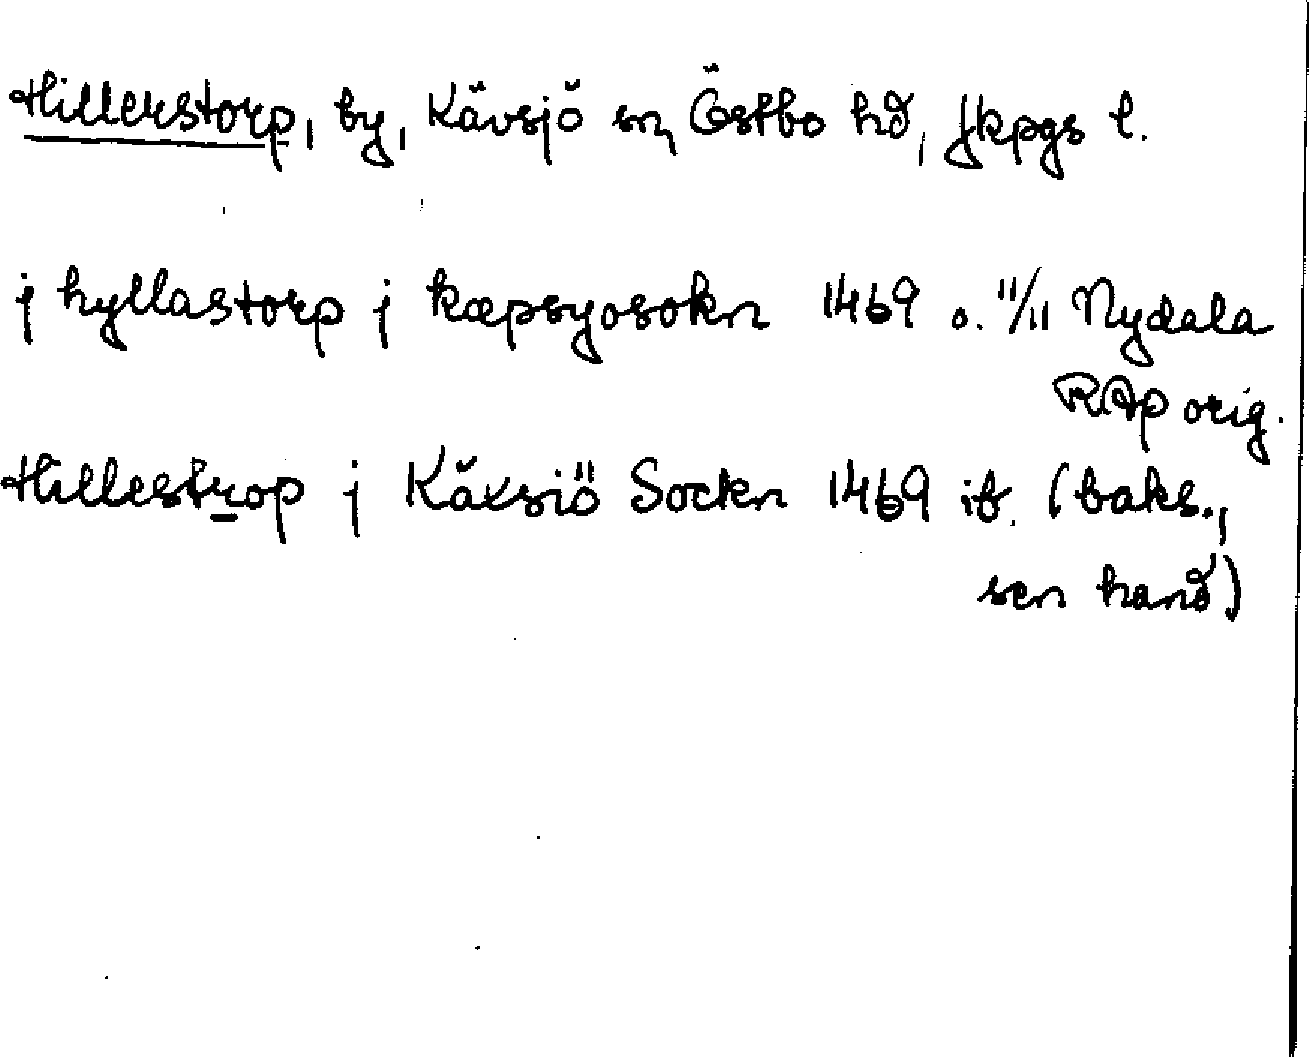 Hillerstorp, by, Kävsjö sn, Östbo hd, Jkpgs l.
j hyllastorp j kæpsyosokn 1469 o. 11/11 Nydala
RAp orig.
Hillestrop j Käxsiö Sockn 1469 ib. (baks.,
sen hand)